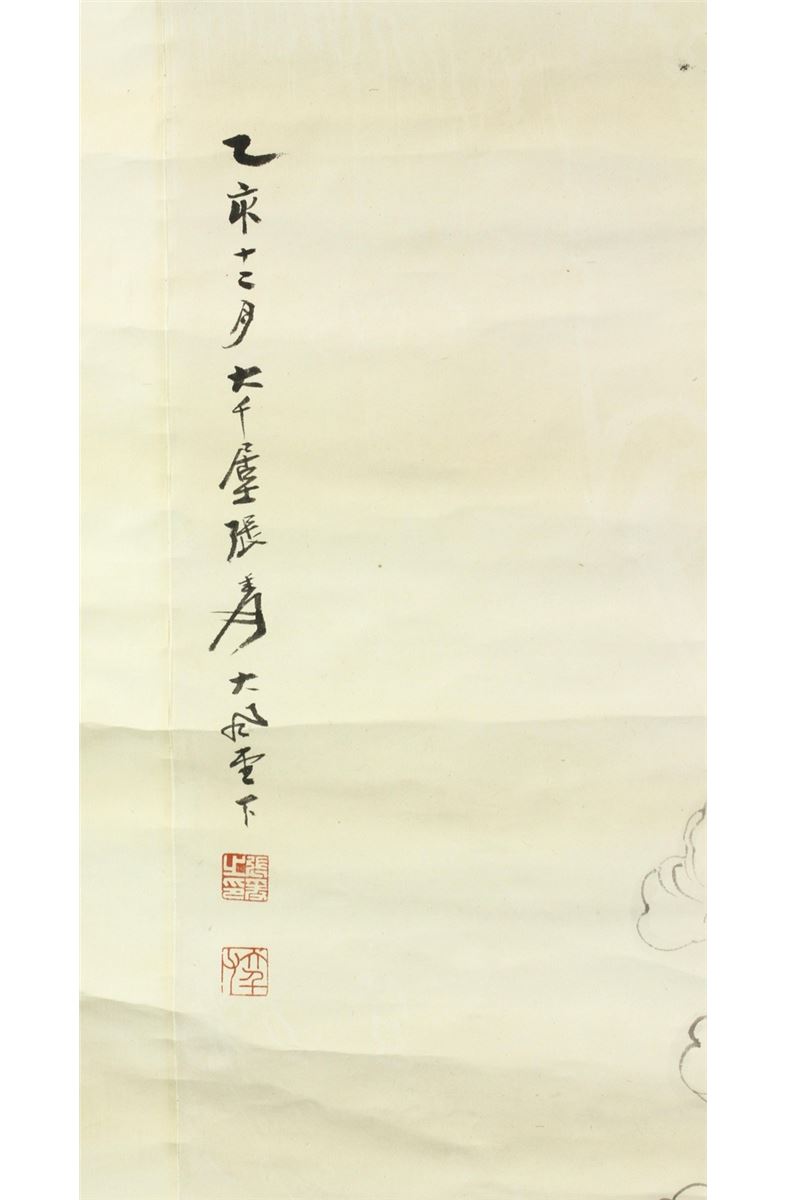 乙亥十二月大千居士張爰大風堂下
張爰之印